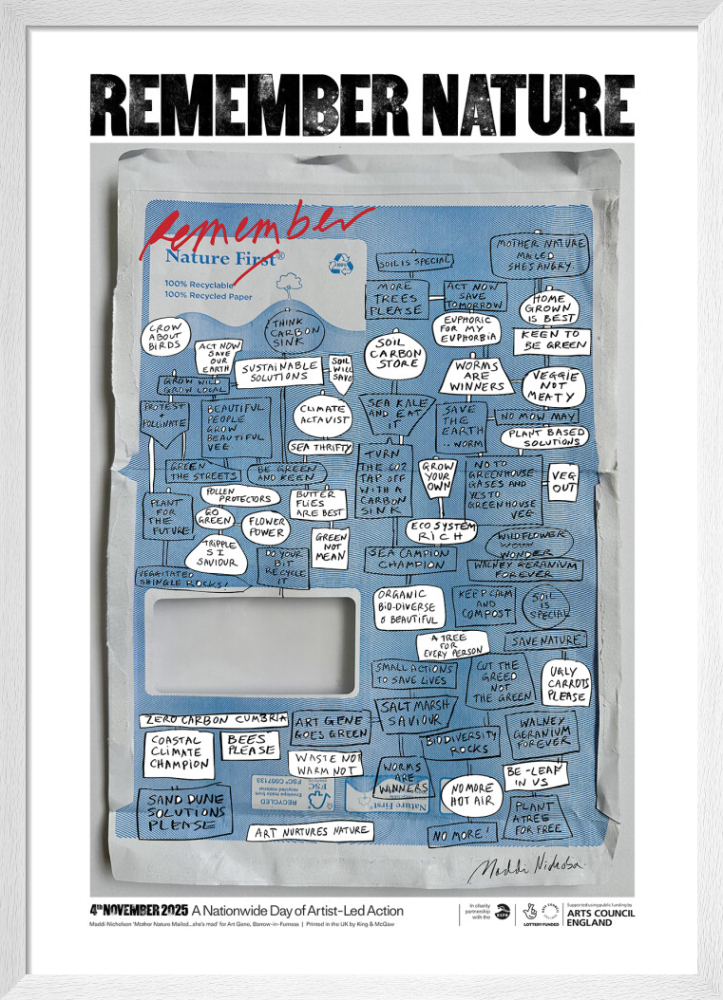 REMEMBER NATURE
Remember
Nature First®
100% Recyclable
100% Recycled Paper
CROW
ABOUT
BIRDS
ACT NOW
SAVE
OUR
EARTH
THINK
CARBON
SINK
SUSTAINABLE
SOLUTIONS
SOIL
WILL
SAVE
GROW WILD
GROW LOCAL
PROTEST
+
POLLINATE
BEAUTIFUL
PEOPLE
GROW
BEAUTIFUL
VEG
CLIMATE
ACTAVIST
SEA THRIFTY
GREEN
THE STREETS
BE GREEN
AND KEEN
POLLEN
PROTECTORS
BUTTER
FLIES
ARE BEST
PLANT
FOR
THE
FUTURE
GO
GREEN
FLOWER
POWER
TRIPPLE
S I
SAVIOUR
DO YOUR
BIT
RECYCLE
IT
GREEN
NOT
MEAN
VEGGITATED
SHINGLE ROCKS!
SOIL IS SPECIAL
MOTHER NATURE
MAILED
SHE'S ANGRY
MORE
TREES
PLEASE
ACT NOW
SAVE
TOMORROW
HOME
GROWN
IS BEST
EUPHORIC
FOR MY
EUPHORBIA
KEEN TO
BE GREEN
SOIL
CARBON
STORE
WORMS
ARE
WINNERS
VEGGIE
NOT
MEATY
SEA KALE
AND EAT
IT
SAVE
THE
EARTH
WORM
NO MOW MAY
PLANT BASED
SOLUTIONS
TURN
THE CO2
TAP OFF
WITH A
CARBON
SINK
GROW
YOUR
OWN
NO TO
GREENHOUSE
GASES AND
YES TO
GREENHOUSE
VEG
VEG
OUT
ECO SYSTEM
RICH
WILDFLOWER
WONDER
SEA CAMPION
CHAMPION
WALNEY GERANIUM
FOREVER
ORGANIC
BIO-DIVERSE
& BEAUTIFUL
KEEP CALM
AND
COMPOST
SOIL
IS
SPECIAL
A TREE
FOR
EVERY PERSON
SAVE NATURE
SMALL ACTIONS
TO SAVE LIVES
CUT THE
GREED
NOT
THE GREEN
UGLY
CARROTS
PLEASE
SALT MARSH
SAVIOUR
BIODIVERSITY
ROCKS
WALNEY
GERANIUM
FOREVER
ZERO CARBON CUMBRIA
ART GENE
GOES GREEN
COASTAL
CLIMATE
CHAMPION
BEES
PLEASE
WASTE NOT
WARM NOT
WORMS
ARE
WINNERS
BE-LEAF
IN US
NO MORE
HOT AIR
SAND DUNE
SOLUTIONS
PLEASE
RECYCLED
FSC
FSC® C007133
Nature First
PLANT
A TREE
FOR FREE
NO MORE!
ART NURTURES NATURE
4th NOVEMBER 2025 A Nationwide Day of Artist-Led Action
Maddi Nicholson 'Mother Nature Mailed...she's mad' for Art Gene, Barrow-in-Furness | Printed in the UK by King & McGaw
In charity
partnership
with the
LOTTERY FUNDED
Supported using public funding by
ARTS COUNCIL
ENGLAND